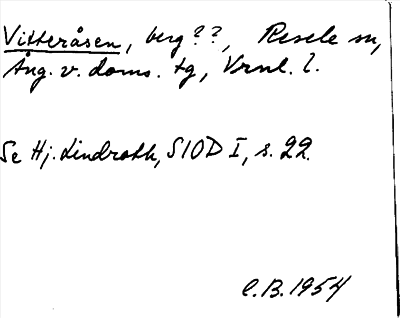 Vitteråsen, berg??, Resele sn,
Ång. v. doms. tg, Vrnl. l.
Se Hj. Lindroth, SIOD I, s. 22.
C.B. 1954